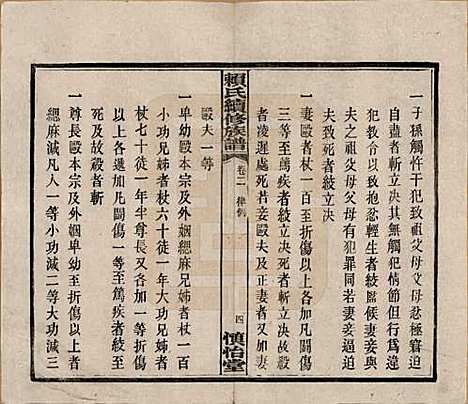 一子孫觸忤干犯致祖父母父母忿極窘
迫自立斬决其無觸犯情節但行為違
犯教令以致抱忿輕生者絞監候妻妾與
夫之祖父母父母有犯罪同若妻妾逼迫
夫致死者絞立决
一妻毆夫者杖一百至折傷以上者加凡鬭傷
三等至篤疾者絞立决死者斬立决故殺
者凌遲處死若妾毆夫及正妻者又加妻
毆夫一等
賴氏續修族譜
卷二 律例
四
慎怡堂
一卑幼毆本宗及外姻緦麻兄姊者杖一百
小功兄姊者杖六十徒一年大功兄姊者
杖七十徒一年半尊長又各加一等折傷
以上者各加凡鬭傷一等至篤疾者絞至
死及故殺者斬
一尊長毆本宗及外姻卑幼至折傷以上者
緦麻減凡人一等小功減二等大功減三